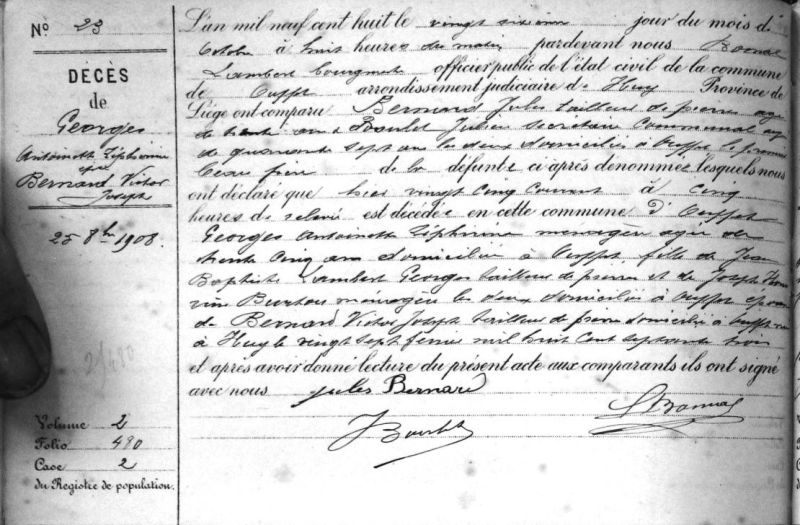 N° 23
DÉCÈS
de
Georges
Antoinette Zéphirine
épse
Bernard Victor
Joseph
25 8bre 1908.
21/480
Volume 2
Folio 480
Case 2
du Registre de population.
L'an mil neuf cent huit le vingt sixième jour du mois d'
Octobre à huit heures du matin pardevant nous
Lambert bourgmestre officier public de l'état civil de la commune
de Ouffet arrondissement judiciaire de Huy Province de
Liége ont comparu Bernard Jules tailleur de pierres agé
de trente ans & Boulet Julien Secrétaire Communal agé
de quarante sept ans les deux domiciliés à Ouffet le premier
beau frère de la défunte ci après dénommée lesquels nous
ont déclaré que hier vingt cinq courant à cinq
heures de relevée est décédée en cette commune d'Ouffet
Georges Antoinette Zéphirine ménagère agée de
trente cinq ans domiciliée à Ouffet fille de Jean
Baptiste Lambert Georges tailleur de pierres et de Joseph
Burton ménagère les deux domiciliés à Ouffet épouse
de Bernard Victor Joseph tailleur de pierre domicilié à Ouffet née
à Huy le vingt sept mil huit cent septante trois
et après avoir donné lecture du présent acte aux comparants ils ont signé
avec nous Jules Bernard